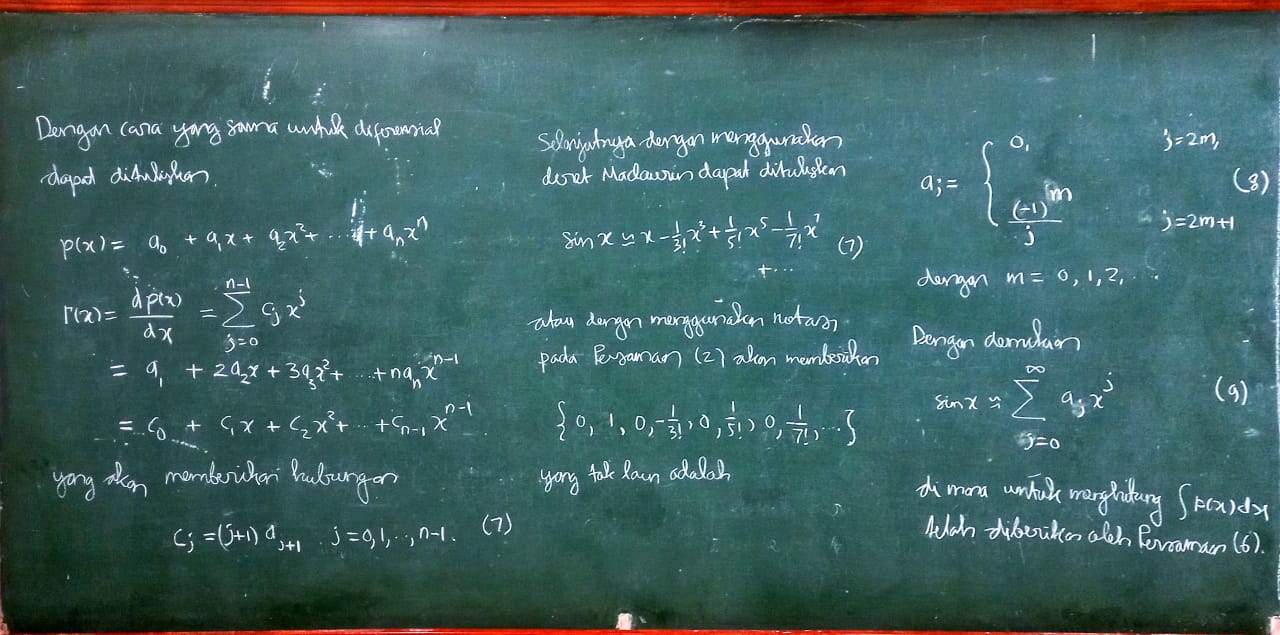 Dengan cara yang sama untuk diferensial
dapat dituliskan
p(x) = a₀ + a₁x + a₂x² + ... + aₙxⁿ
r(x) = dp(x)/dx = ∑_{j=0}^{n-1} cⱼ xʲ
= a₁ + 2a₂x + 3a₃x² + ... + naₙxⁿ⁻¹
= c₀ + c₁x + c₂x² + ... + cₙ₋₁ xⁿ⁻¹
yang akan memberikan hubungan
cⱼ = (j+1) aⱼ₊₁ j = 0,1,..,n-1. (7)
Selanjutnya dengan menggunakan
deret Maclaurin dapat dituliskan
sin x ≈ x - 1/3! x³ + 1/5! x⁵ - 1/7! x⁷ (7)
+ ...
atau dengan menggunakan notasi
pada Persamaan (2) akan memberikan
{0, 1, 0, -1/3!, 0, 1/5!, 0, 1/7!, ...}
yang tak lain adalah
aⱼ = { 0, j = 2m,
(-1)^m / j j = 2m+1 (8)
dengan m = 0, 1, 2, ...
Dengan demikian
sin x ≈ ∑_{j=0}^{∞} aⱼ xʲ (9)
di mana untuk menghitung ∫p(x)dx
telah diberikan oleh Persamaan (6).